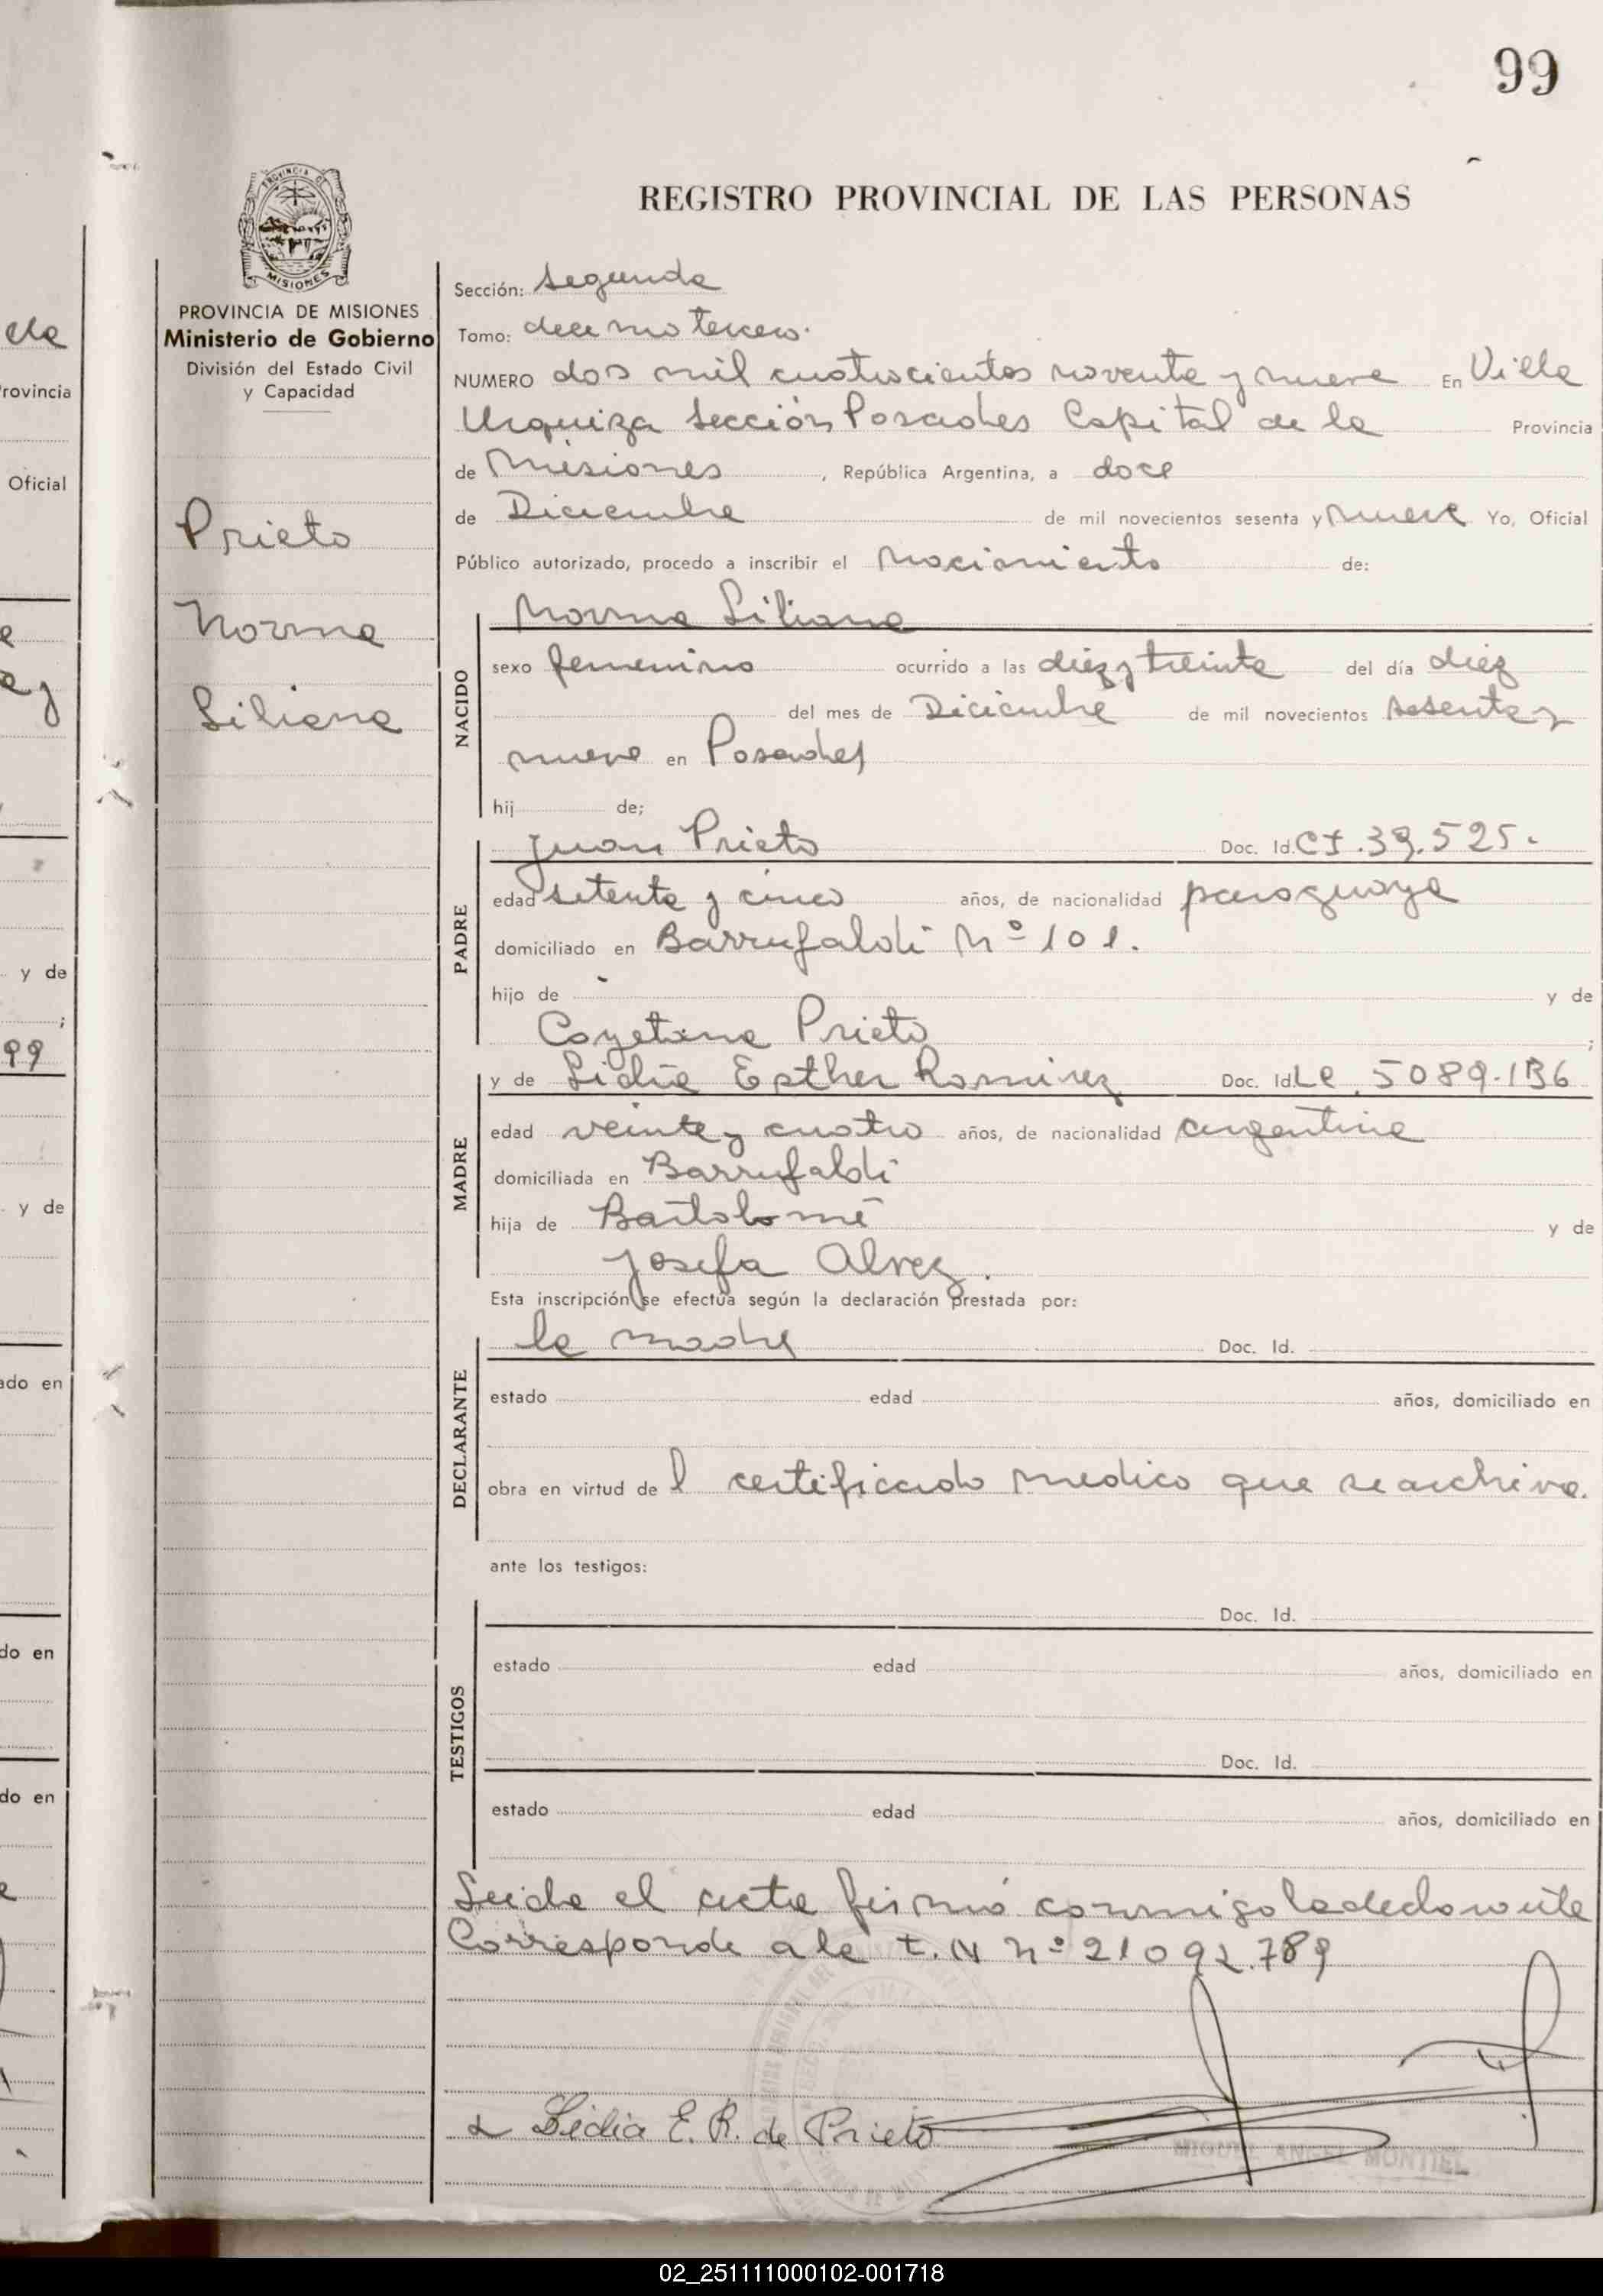 99
REGISTRO PROVINCIAL DE LAS PERSONAS
PROVINCIA DE MISIONES
MISIONES
PROVINCIA DE MISIONES
Ministerio de Gobierno
División del Estado Civil
y Capacidad
Prieto
Norma
Liliana
Sección: segunda
Tomo: decimo tercero.
NUMERO dos mil cuatrocientos noventa y nueve En Villa
Urquiza sección Posadas Capital de la Provincia
de Misiones, República Argentina, a doce
de Diciembre de mil novecientos sesenta y nueve Yo, Oficial
Público autorizado, procedo a inscribir el Nacimiento de:
NACIDO
Norma Liliana
sexo femenino ocurrido a las diez y treinta del día diez
del mes de Diciembre de mil novecientos sesenta y
nueve en Posadas
hij de;
PADRE
Juan Prieto Doc. Id. CI.39.525.
edad setenta y cinco años, de nacionalidad paraguaya
domiciliado en Barrufaldi Nº 101.
hijo de y de
Cayetana Prieto ;
MADRE
y de Lidia Esther Ramirez Doc. Id. Lc. 5089.136
edad veinte y cuatro años, de nacionalidad argentina
domiciliada en Barrufaldi
hija de Bartolomé y de
Josefa Alvez.
Esta inscripción se efectúa según la declaración prestada por:
DECLARANTE
la madre Doc. Id.
estado edad años, domiciliado en
obra en virtud del certificado medico que se archiva.
ante los testigos:
TESTIGOS
Doc. Id.
estado edad años, domiciliado en
Doc. Id.
estado edad años, domiciliado en
Leida el acta firmó conmigo la declarante
Corresponde a la t. N nº 21092.789
Lidia E. R. de Prieto
MIGUEL ANGEL MONTIEL
ela
rovincia
Oficial
y de
;
99
y de
ado en
do en
do en
02_251111000102-001718